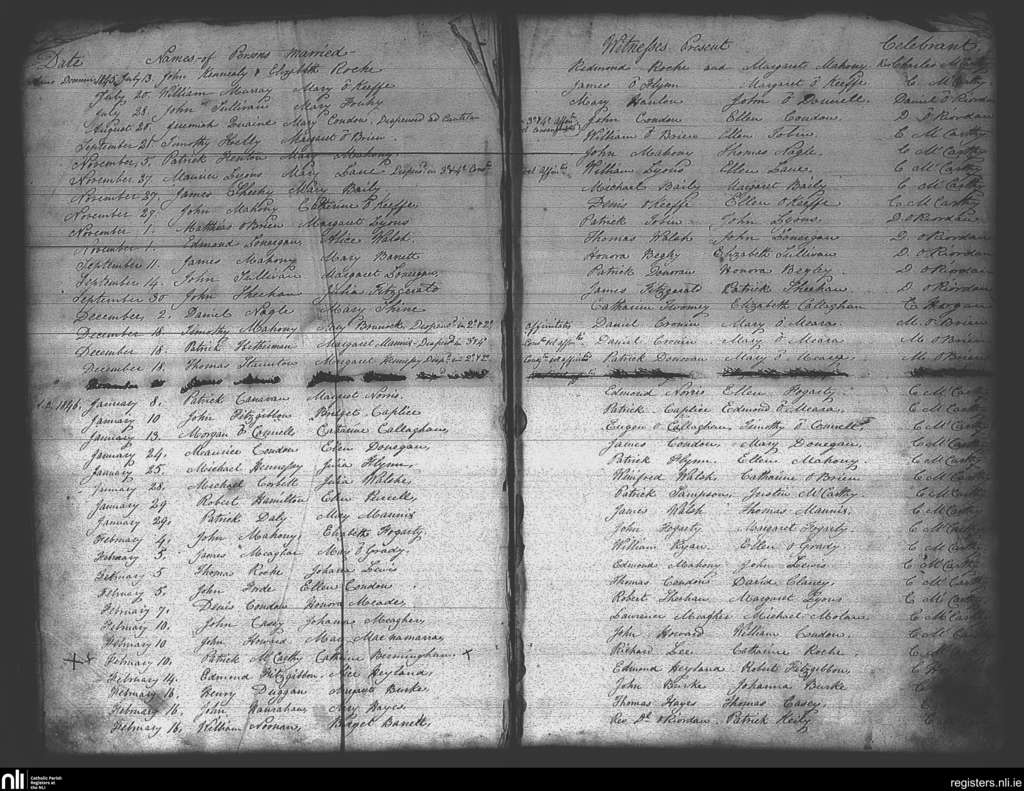 Date Names of Persons Married Witnesses Present Celebrant
1845 July 13. John Kennealy & Elizabeth Roche Redmond Roche and Margaret Mahony Charles
July 20. William Murray Mary O Keeffe James O Flynn Margaret O Keeffe C McCarthy
July 28. John Sullivan Mary Mary Hanlon John O Donnell Daniel O Riordan
August 28. Jeremiah Mary Condon. Dispensed ad Cautelam John Condon Ellen Condon. D. O Riordan
September 25 Timothy Kelly Margaret O Brien. William O Brien Ellen Tobin. C McCarthy
November, 5. Patrick Mary Mahony. John Mahony Thomas Nagle. C McCarthy
November. 27 Maurice Lyons Mary Lane Dispens. in 3 & 4 William Lyons Ellen Lane. C McCarthy
November. 27. James Sheehy Mary Baily Michael Baily Margaret Baily C McCarthy
November 29. John Mahony Catherine O Keeffe Denis O Keeffe Ellen O Keeffe C. McCarthy
November 1. Matthias O Brien Margaret Lyons Patrick Tobin John Lyons. D. O Riordan
November 1. Edmond Lonergan, Alice Walsh. Thomas Walsh John Lonergan D. O Riordan
September 11. James Mahony Mary Barrett Honora Begley Elizabeth Sullivan D. O Riordan
September 14. John Sullivan Margaret Lonergan, Patrick Donovan Honora Begley. D. O Riordan
September 30 John Sheehan Julia Fitzgerald James Fitzgerald Patrick Sheehan D. O Riordan
December, 2. Daniel Nagle Mary Shine Catharine Twomey Elizabeth Callaghan C. Horgan
December 18. Timothy Mahony Mary Dispens. in 2 & 2 affinitatis Daniel Cronin Mary O Meara. M. O Brien
December 18. Patrick Margaret Mannix Dispens. in 3 & 4 Daniel Mary O Meara M. O Brien
December 18. Thomas Stanton Margaret Hennessy Disp. in 2 & 2 Patrick Donovan Mary O Meara M. O Brien
1846. January 8. Patrick Canavan Margaret Norris. Edmond Norris Ellen Fogarty. C McCarthy
January 10 John Fitzgibbon Bridget Caplice Patrick Caplice Edmond O Meara. C McCarthy
January 13. Morgan O Connell Catharine Callaghan, Eugene O Callaghan, Timothy O Connell C McCarthy
January 24. Maurice Condon Ellen Donegan, James Condon, Mary Donegan. C McCarthy
January 25. Michael Hennessy Julia Flynn, Patrick Flynn. Ellen Mahony C McCarthy
January 28. Michael Corbett Julia Walshe, Winifred Walsh, Catharine O Brien C McCarthy
January 29 Robert Hamilton Ellen Patrick Sampson, Justin McCarthy C McCarthy
January 29. Patrick Daly Mary Mannix James Walsh Thomas Mannix. C McCarthy
February 4. John Mahony. Elizabeth Fogarty, John Fogarty Margaret Fogarty C McCarthy
February 5. James Meagher Mary O Grady. William Ryan. Ellen O Grady. C McCarthy
February 5 Thomas Roche Johanna Lewis Edmond Mahony John Lewis C McCarthy
February 5. John Forde Ellen Condon Thomas Condon. David Clancy. C McCarthy
February 7. Denis Condon Honora Meade, Robert Sheehan Margaret Lyons C McCarthy
February 10. John Casey Johanna Meagher, Laurence Meagher Michael C McCarthy
February 10 John Howard Mary Macnamara, John Howard William Condon. C McCarthy
February 10, Patrick McCarthy Catherine Bermingham, Richard Lee Catharine Roche C McCarthy
February 14. Edmond Fitzgibbon, Alice Heyland, Edmond Heyland Robert Fitzgibbon
February 16, Henry Duggan Margaret Burke, John Burke Johanna Burke
February 16, John Hanrahan, Mary Hayes Thomas Hayes Thomas Casey.
February 16, William Noonan, Bridget Barrett, Rev. Dl. O Riordan Patrick Kiely
nli
Catholic Parish
Registers at
the NLI
registers.nli.ie